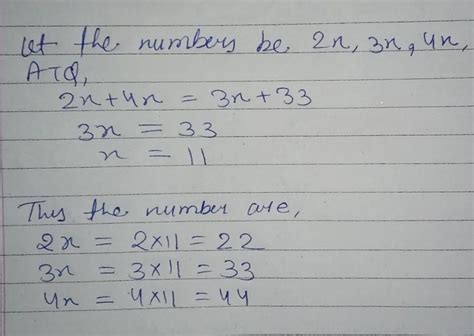 Let the numbers be 2x, 3x, 4x,
ATQ,
2x + 4x = 3x + 33
3x = 33
x = 11
Thus the number are,
2x = 2×11 = 22
3x = 3×11 = 33
4x = 4×11 = 44